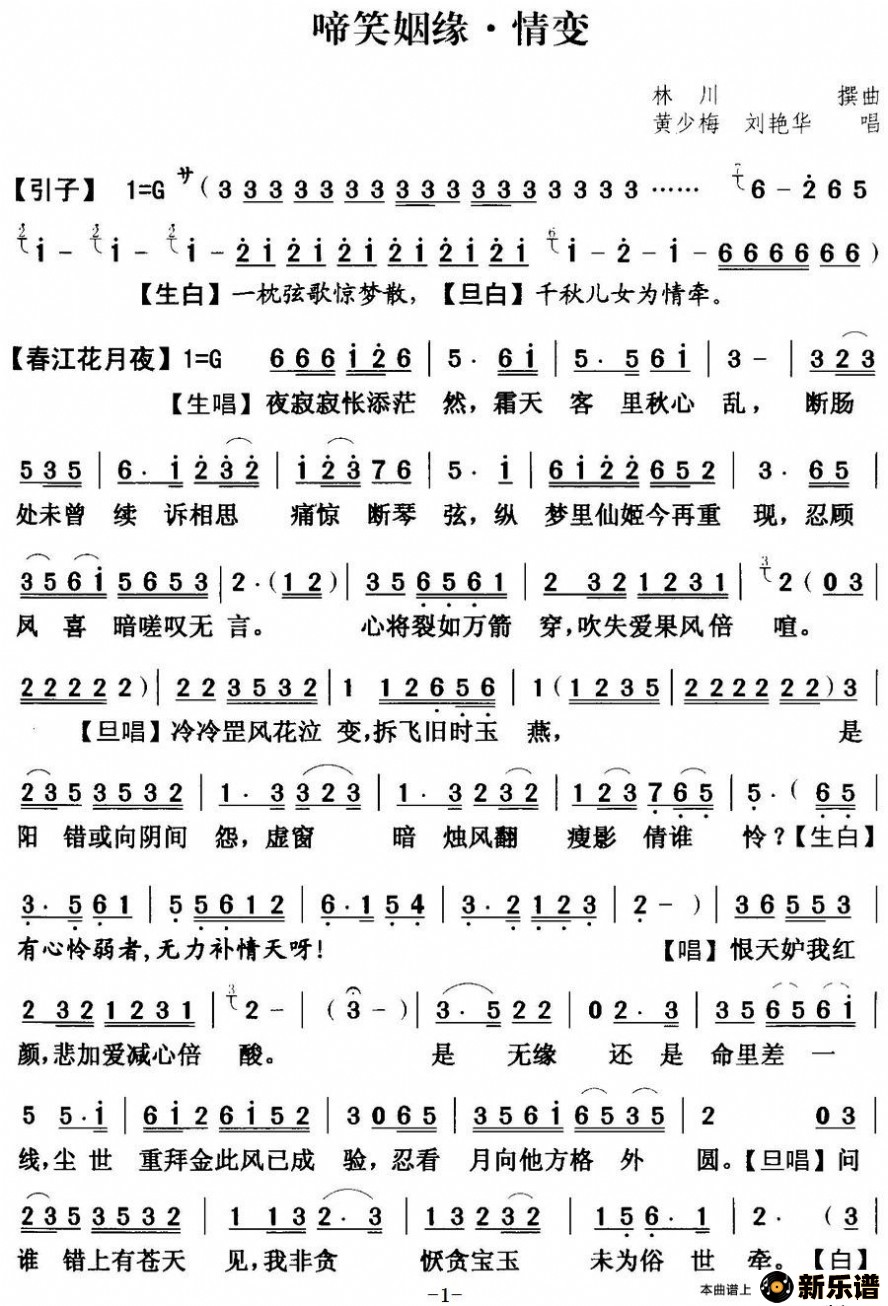 啼笑姻缘·情变
林川 撰曲
黄少梅 刘艳华 唱
【引子】 1=G サ ( 3 3 3 3 3 3 3 3 3 3 3 3 3 3 3 3 3 …… 6 - 2 6 5
i - i - i - 2 i 2 i 2 i 2 i 2 i 2 i i - 2 - i - 6 6 6 6 6 6 6 )
【生白】一枕弦歌惊梦散,【旦白】千秋儿女为情牵。
【春江花月夜】1=G 6 6 6 i 2 6 | 5 · 6 i | 5 · 5 6 i | 3 - | 3 2 3
【生唱】夜寂寂怅添茫 然, 霜天 客 里秋心 乱, 断肠
5 3 5 | 6 · i 2 3 2 | i 2 3 7 6 | 5 · i | 6 i 2 2 6 5 2 | 3 · 6 5
处未曾 续 诉相思 痛惊 断琴 弦, 纵 梦里仙姬今再重 现, 忍顾
3 5 6 i 5 6 5 3 | 2 · ( 1 2 ) | 3 5 6 5 6 1 | 2 3 2 1 2 3 1 | 2 ( 0 3
凤 喜 暗嗟叹无 言。 心将裂如万箭 穿, 吹失爱果风倍 喧。
2 2 2 2 2 ) | 2 2 3 5 3 2 | 1 1 2 6 5 6 | 1 ( 1 2 3 5 | 2 2 2 2 2 2 2 ) 3
【旦唱】冷冷罡风花泣 变, 拆飞旧时玉 燕, 是
2 3 5 3 5 3 2 | 1 · 3 3 2 3 | 1 · 3 2 3 2 | 1 2 3 7 6 5 | 5 · ( 6 5
阳 错或向阴间 怨, 虚窗 暗 烛风翻 瘦影 倩谁 怜?【生白】
3 · 5 6 1 | 5 5 6 1 2 | 6 · 1 5 4 | 3 · 2 1 2 3 | 2 - ) | 3 6 5 5 3
有心怜弱者, 无力补情天呀! 【唱】恨天妒我红
2 3 2 1 2 3 1 | 2 - | ( 3 - ) | 3 · 5 2 2 | 0 2 · 3 | 3 5 6 5 6 i
颜, 悲加爱减心倍 酸。 是 无缘 还 是 命里差 一
5 5 · i | 6 i 2 6 i 5 2 | 3 0 6 5 | 3 5 6 i 6 5 3 5 | 2 0 3
线, 尘 世 重拜金此风已成 验, 忍看 月向他方格 外 圆。【旦唱】问
2 3 5 3 5 3 2 | 1 1 3 2 · 3 | 1 3 2 3 2 | 1 5 6 · 1 | 2 · ( 3
谁 错上有苍天 见, 我非贪 恹贪宝玉 未为俗 世 牵。【白】
-1-
本曲谱上 新乐谱